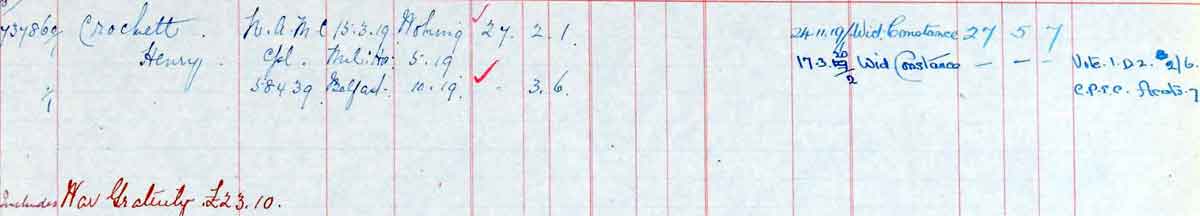 737869 Crockett. R.A.M.C 15.3.19 Woking 27. 2. 1. 24.11.19 Wid. Constance 27 5 7
Henry. Cpl. Mil: Ho: 5.19 17.3.20 Wid Constance - - - Vote. 1. D 2. 2/6.
1/1 58439 Belfast. 10.19. - 3. 6. C.P.F.C. 7
Includes War Gratuity £23.10.